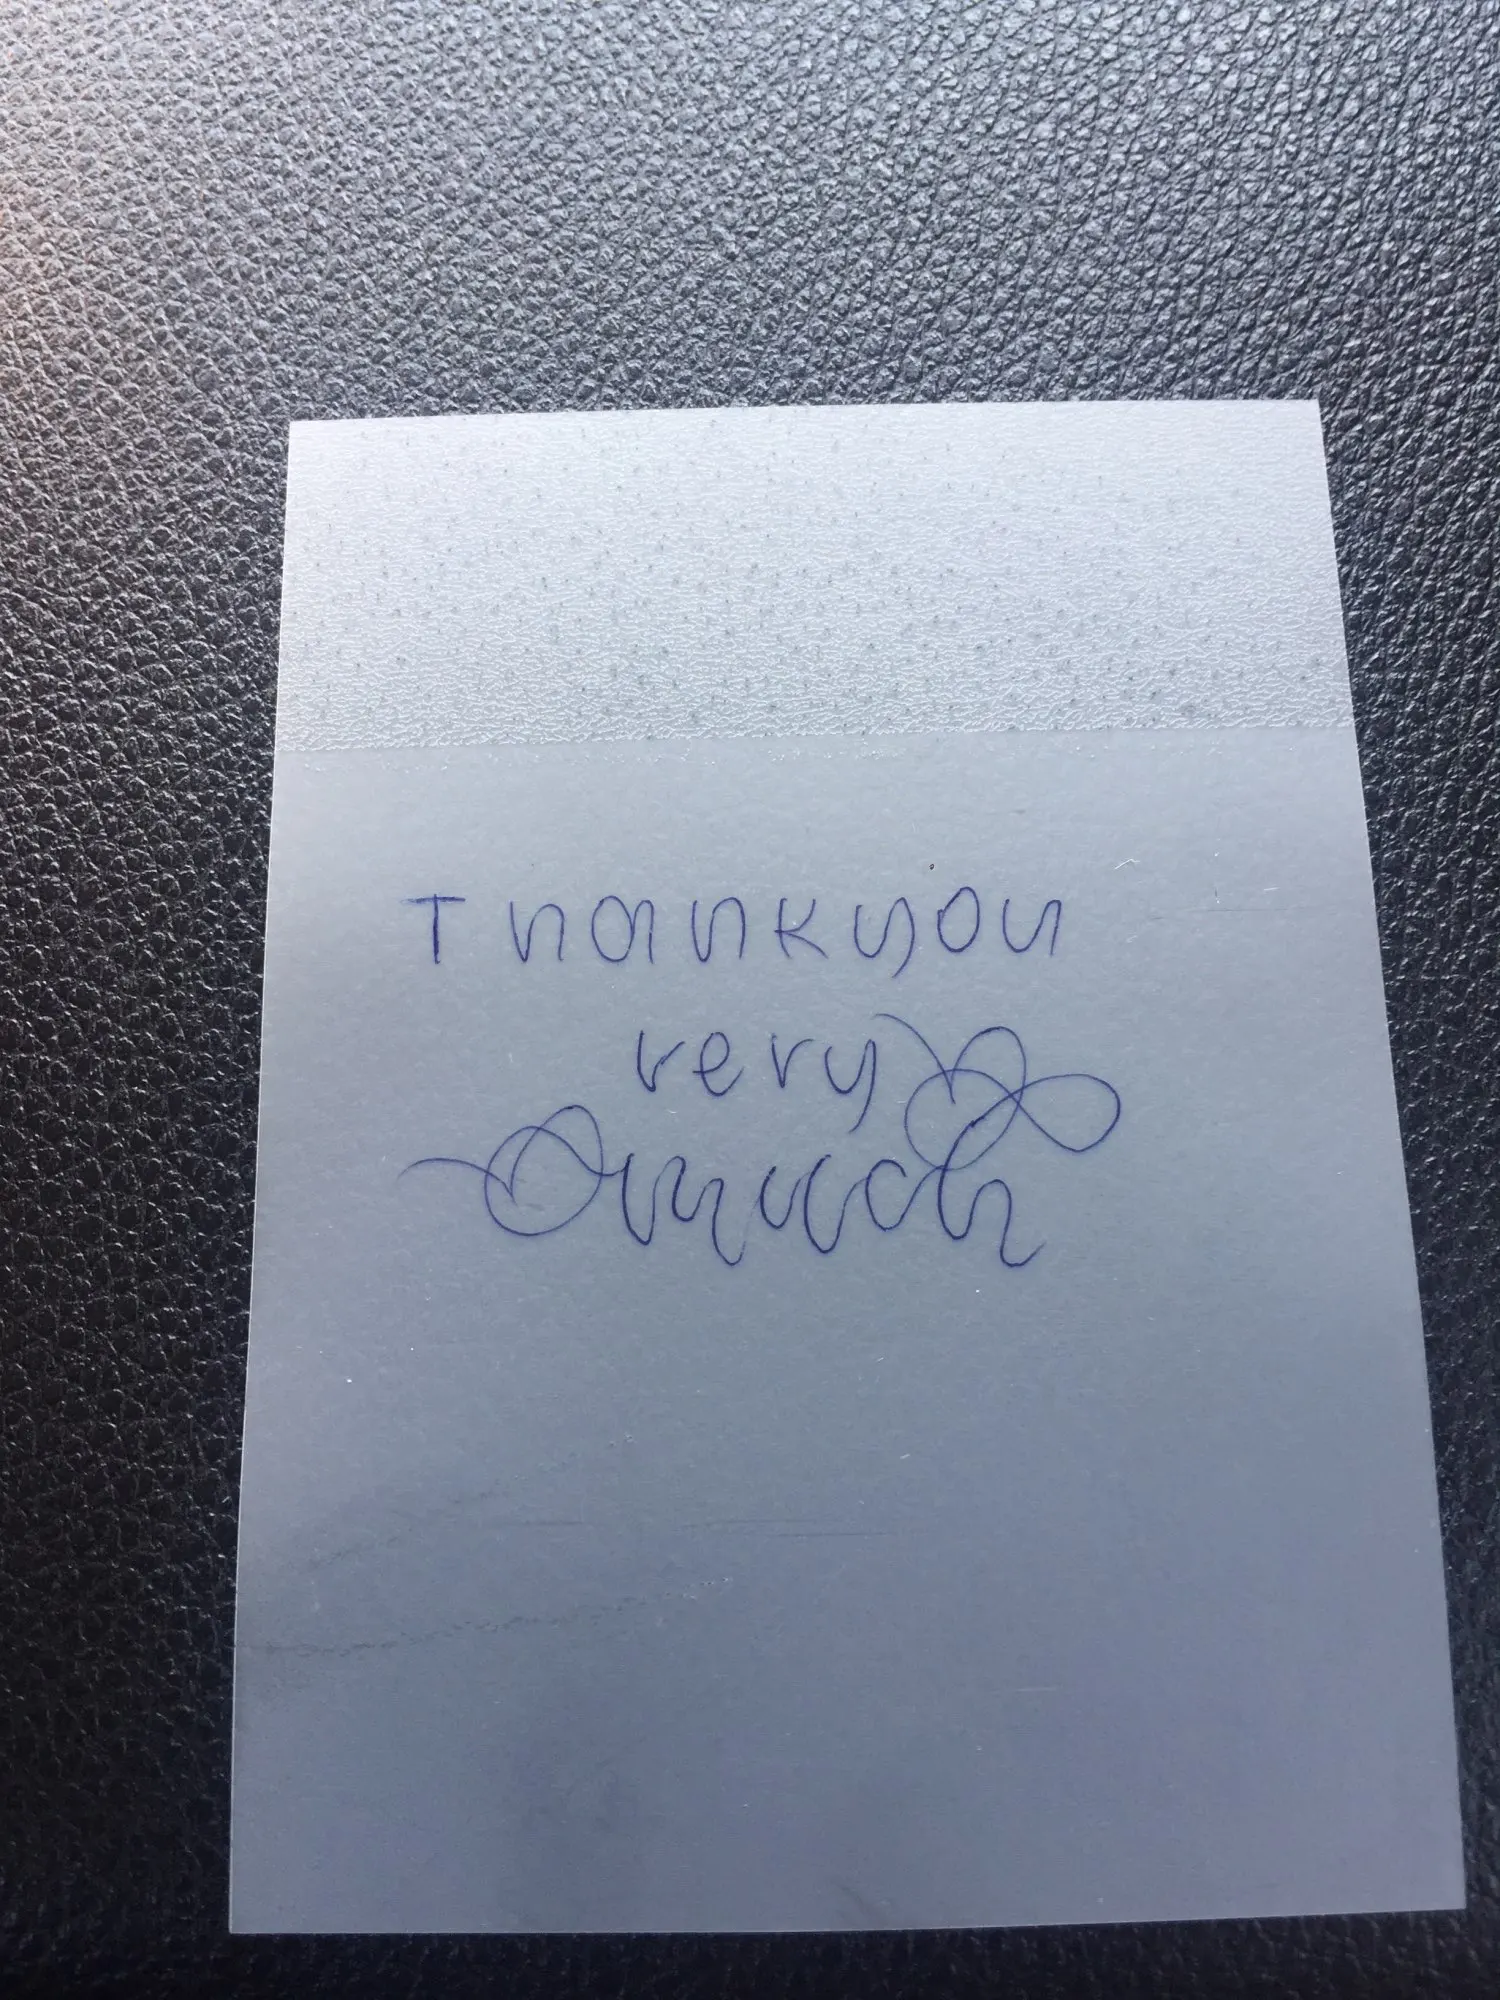 Thank you
very
much